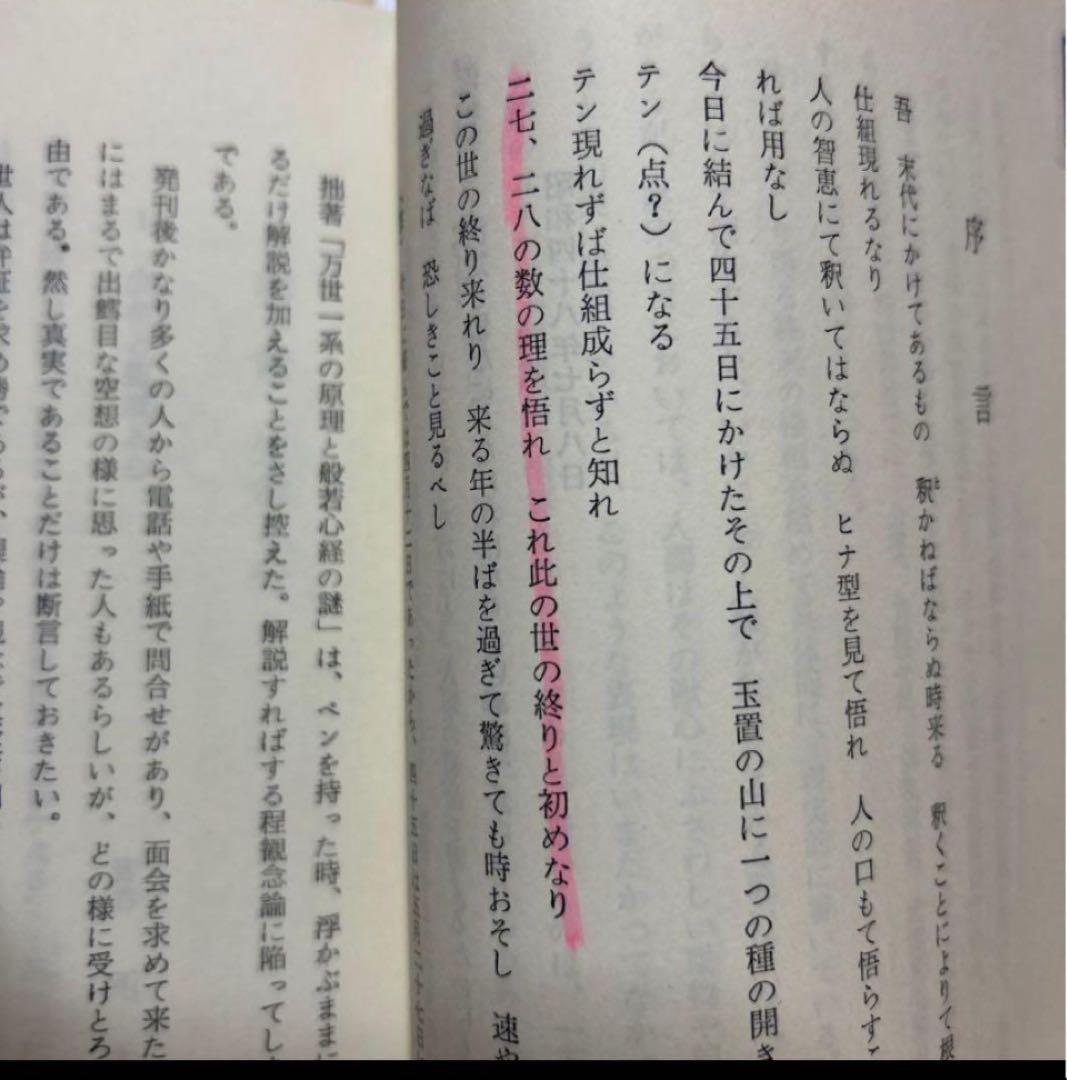 序言
吾 末代にかけてあるもの 釈かねばならぬ時来る 釈くことによりて根
仕組現れるなり
人の智恵にて釈いてはならぬ ヒナ型を見て悟れ 人の口もて悟らすこ
れば用なし
今日に結んで四十五日にかけたその上で 玉置の山に一つの種の開き
テン(点?)になる
テン現れずば仕組成らずと知れ
二七、二八の数の理を悟れ これ此の世の終りと初めなり
この世の終り来れり 来る年の半ばを過ぎて驚きても時おそし 速や
過ぎなば 恐しきこと見るべし
拙著「万世一系の原理と般若心経の謎」は、ペンを持った時、浮かぶままに
るだけ解説を加えることをさし控えた。解説すればする程観念論に陥ってし
である。
発刊後かなり多くの人から電話や手紙で問合せがあり、面会を求めて来た
にはまるで出鱈目な空想の様に思った人もあるらしいが、どの様に受けとろ
由である。然し真実であることだけは断言しておきたい。